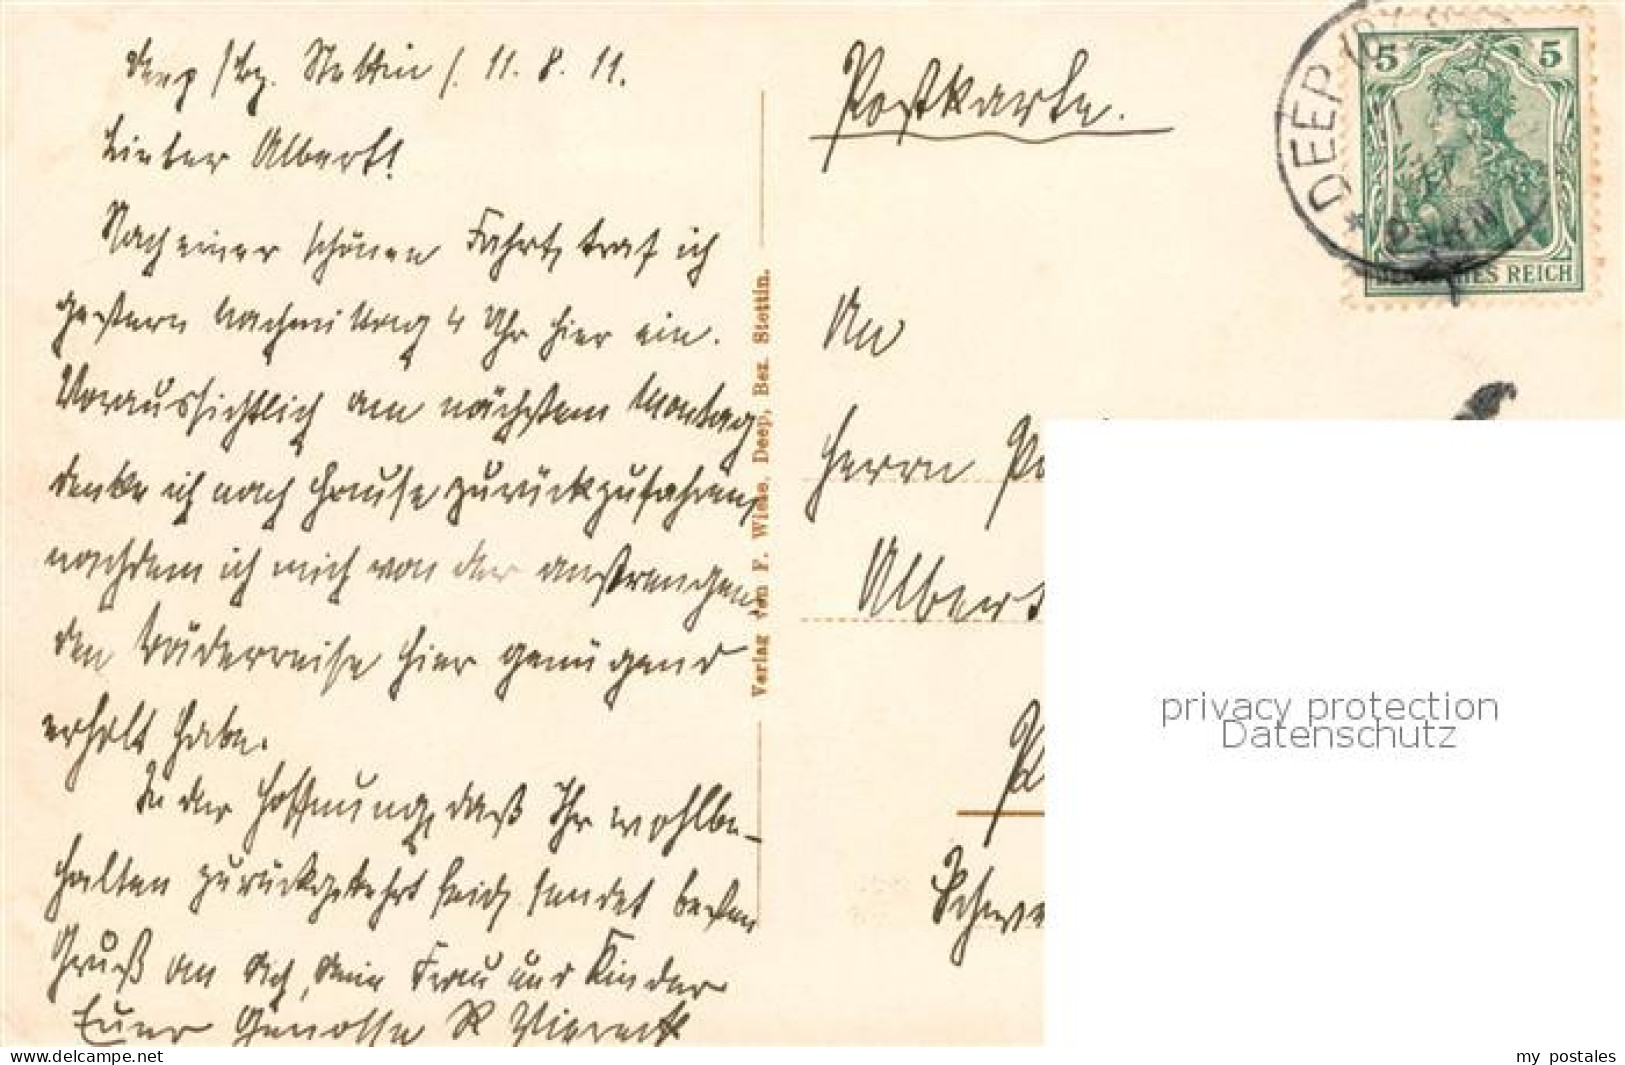 Deep /Bz. Stettin/. 11. 8. 11.
Lieber Albert!
Nach einer schönen Fahrt, traf ich
gestern nachmittag 4 Uhr hier ein.
Voraussichtlich am nächstem Montag
denke ich nach Hause zurückzufahren,
nachdem ich mich von der anstrengen-
den Bäderreise hier genügend
erholt habe.
In der Hoffnung, daß Ihr wohlbe-
halten zurückgekehrt seid, sendet besten
Gruß an Dich, Deine Frau und Kinder
Euer Genosse R
Verlag von F. Wiese, Deep, Bez. Stettin.
Postkarte.
5 5
DEUTSCHES REICH
DEEP
An
Herrn
Albert
Schwe
privacy protection
Datenschutz
www.delcampe.net
my_postales